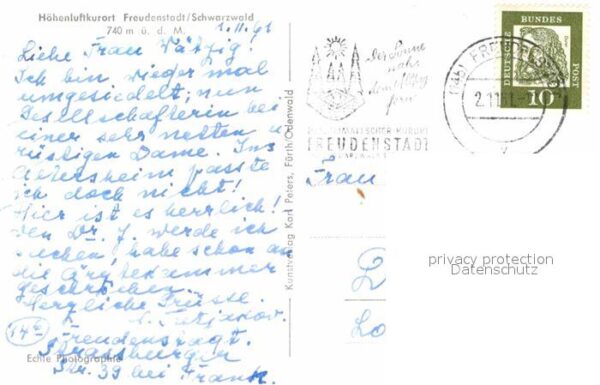 Höhenluftkurort Freudenstadt/Schwarzwald
740 m ü. d. M.
1.11.61
Liebe Frau
Ich bin wieder mal
umgesiedelt; nun
Gesellschafterin bei
einer sehr netten u
rüstigen Dame. Ins
Altersheim passte
ich doch nicht!
Hier ist es herrlich!
Den Dr. J. werde ich
suchen, habe schon an
die Ärztekammer
geschrieben.
Herzliche Grüsse
Freudenstadt.
Strassburger
Str. 39 bei Frank.
Echte Photographie
Kunstverlag Karl Peters, Fürth/Odenwald
Der Sonne
nahe
dem Alltag
fern
FREUDENSTADT
DEUTSCHE BUNDESPOST
10
Frau
L
Lo
privacy protection
Datenschutz